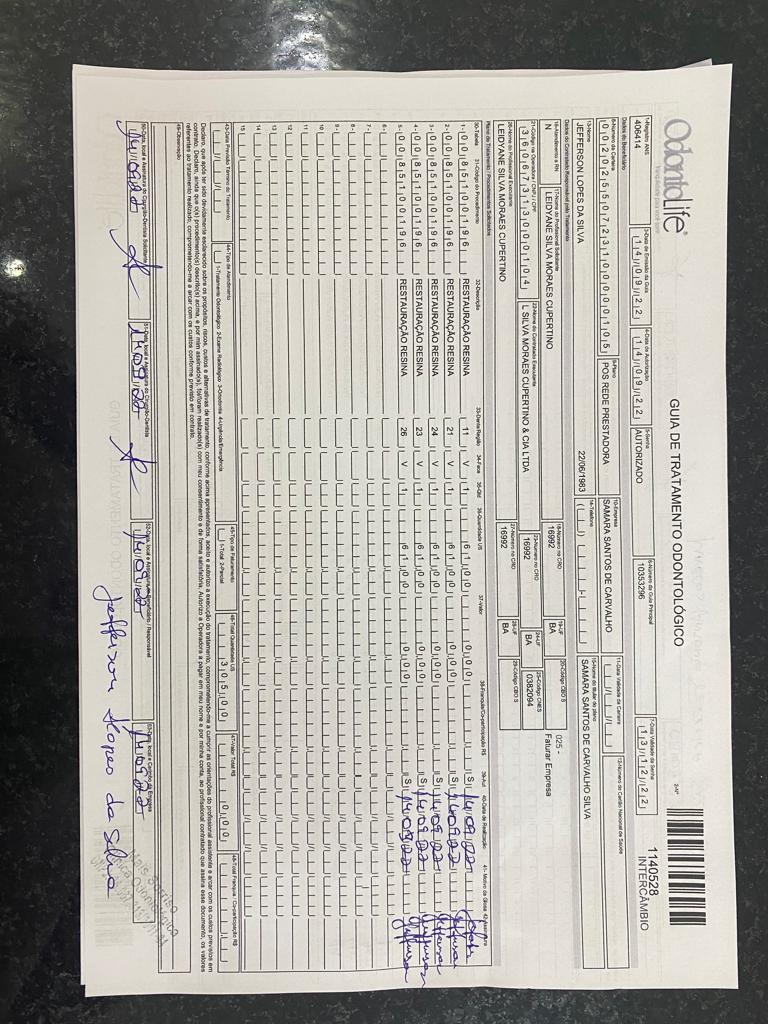 OdontoLife®
GUIA DE TRATAMENTO ODONTOLÓGICO
2-Nº
1140528
INTERCÂMBIO
1-Registro ANS
406414
3-Data de Emissão da Guia
14/09/22
4-Data de Autorização
14/09/22
5-Senha
AUTORIZADO
6-Número da Guia Principal
10353296
7-Data Validade da Senha
13/12/22
Dados do Beneficiário
8-Número da Carteira
00202550723100000105
9-Plano
POS REDE PRESTADORA
10-Empresa
SAMARA SANTOS DE CARVALHO
11-Data Validade da Carteira
12-Número do Cartão Nacional de Saúde
13-Nome
JEFFERSON LOPES DA SILVA
22/06/1983
14-Telefone
15-Nome do titular do plano
SAMARA SANTOS DE CARVALHO SILVA
Dados do Contratado Responsável pelo Tratamento
16-Atendimento a RN
N
17-Nome do Profissional Solicitante
LEIDYANE SILVA MORAES CUPERTINO
18-Número no CRO
16992
19-UF
BA
20-Código CBO S
025 -
Faturar Empresa
21-Código na Operadora / CNPJ / CPF
36067313000104
22-Nome do Contratado Executante
L SILVA MORAES CUPERTINO & CIA LTDA
23-Número no CRO
16992
24-UF
BA
25-Código CNES
0382094
26-Nome do Profissional Executante
LEIDYANE SILVA MORAES CUPERTINO
27-Número no CRO
16992
28-UF
BA
29-Código CBO S
Plano de Tratamento / Procedimentos Solicitados
30-Tabela 31-Código do Procedimento 32-Descrição 33-Dente/Região 34-Face 35-Qtd 36-Quantidade US 37-Valor 38-Franquia/Co-participação R$ 39-Aut 40-Data de Realização 41- Motivo da Glosa 42-Assinatura
1- 00 85100196 RESTAURAÇÃO RESINA 11 V 1 61,00 0,00 S 14/09/22
2- 00 85100196 RESTAURAÇÃO RESINA 21 V 1 61,00 0,00 S 14/09/22
3- 00 85100196 RESTAURAÇÃO RESINA 24 V 1 61,00 0,00 S 14/09/22
4- 00 85100196 RESTAURAÇÃO RESINA 23 V 1 61,00 0,00 S 14/09/22
5- 00 85100196 RESTAURAÇÃO RESINA 26 V 1 61,00 0,00 S 14/09/22
6-
7-
8-
9-
10
11
12
13
14
15
43-Data Prevista Término do Tratamento
44-Tipo de Atendimento
1-Tratamento Odontológico 2-Exame Radiológico 3-Ortodontia 4-Urgência/Emergência
45-Tipo de Faturamento
1-Total 2-Parcial
46-Total Quantidade US
305,00
47-Valor Total R$
0,00
48-Total Franquia / Co-participação R$
Declaro, que após ter sido devidamente esclarecido sobre os propósitos, riscos, custos e alternativas de tratamento, conforme acima apresentados, aceito e autorizo a execução do tratamento, comprometendo-me a cumprir as orientações do profissional assistente e arcar com os custos previstos em
contrato. Declaro, ainda que o(s) procedimento(s) descrito(s) acima, e por mim assinado(s), foi/foram realizado(s) com meu consentimento e de forma satisfatória. Autorizo a Operadora a pagar em meu nome e por minha conta, ao profissional contratado que assina esse documento, os valores
referentes ao tratamento realizado, comprometendo-me a arcar com os custos conforme previsto em contrato.
49-Observação
50-Data, local e Assinatura do Cirurgião-Dentista Solicitante
14/09/22
51-Data, local e Assinatura do Cirurgião-Dentista
14/09/22
52-Data, local e Assinatura do Beneficiário / Responsável
14/09/22
Jefferson Lopes da Silva
53-Data, local e Carimbo da Empresa
14/09/22
Mais Sorriso